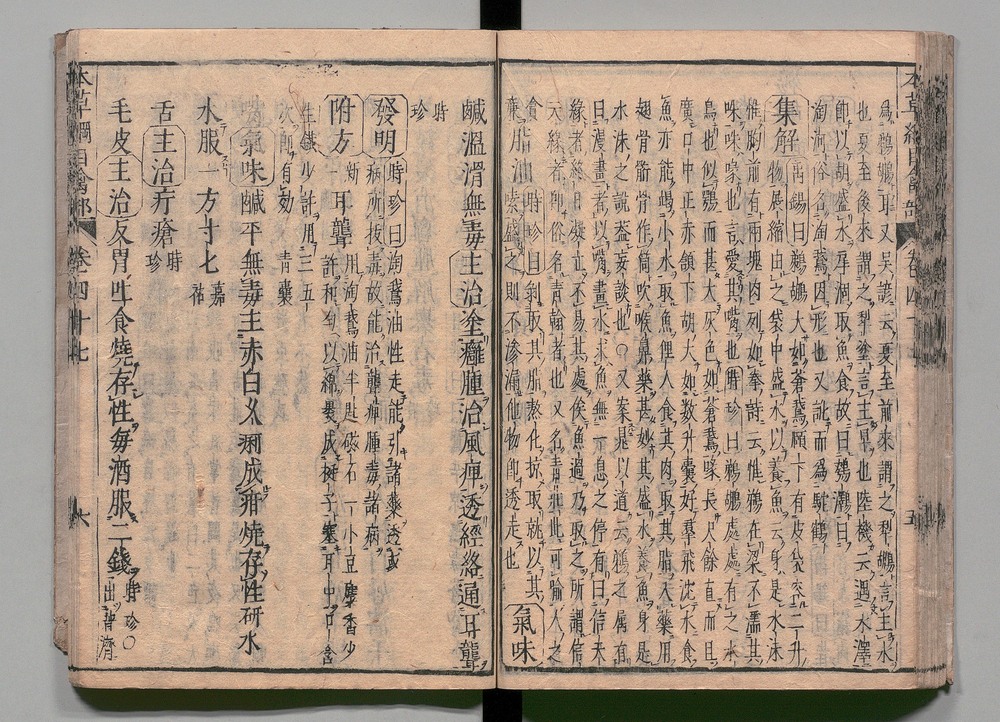 爲鵜鶘耳又吳諺云夏至前來謂之犁鶘言主水
也夏至後來謂之犁塗言主旱也陸機云遇水澤
卽以胡盛水戽涸取魚食故曰鵜鶘曰
淘河俗名淘鵞因形也又訛而爲駝鶴
集解 禹錫曰鵜鶘大如蒼鵞頤下有皮袋容二升
物展縮由之袋中盛水以養魚云身是水沫
惟胸前有兩塊肉列如拳詩云惟鵜在梁不濡其
咮咮喙也言愛其觜也時珍曰鵜鶘處處有之水
鳥也似鶚而甚大灰色如蒼鵞喙長尺餘直而且
廣口中正赤頷下胡大如數升囊好羣飛沈水食
魚亦能竭小水取魚俚人食其肉取其脂入藥用
翅骨䯒骨作筒吹喉鼻藥甚妙其盛水養魚身是
水沫之說蓋妄談也〇又案晁以道云鵜之屬有
曰漫畫者以觜畫水求魚無一息之停有曰信天
緣者終日凝立不易其處俟魚過乃取之所謂信
天緣者卽俗名青翰者也又名青莊此可喻人之
貪
脂油 時珍曰剝取其脂熬化掠取就以其
嗉盛之則不滲漏他物卽透走也 氣味
鹹溫滑無毒主治塗癰腫治風痺透經絡通耳聾
時珍
發明 時珍曰淘鵞油性走能引諸藥透
病所拔毒故能治聾痺腫毒諸病
附方 新一 耳聾 用淘鵞油半匙磁石一小豆麝香少
許和勻以綿裹成梃子塞耳中口含
生鐵少許用三五
次卽有效 青囊
氣味鹹平無毒主赤白久痢成疳燒存性研水
水服一方寸七 嘉祐
舌主治疔瘡 時珍
毛皮主治反胃吐食燒存性每酒服二錢 時珍〇出普濟
本草綱目禽部 卷四十七 六
本草綱目禽部 卷四十 五